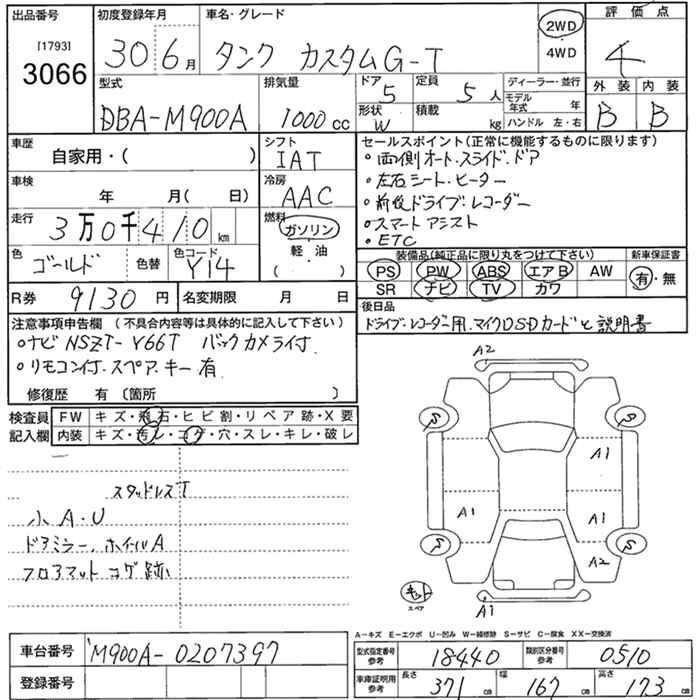 出品番号
[1793]
3066
初度登録年月
30 6月
車名・グレード
タンク カスタムG-T
2WD
4WD
評価点
4
型式
DBA-M900A
排気量
1000 cc
ドア
5
定員
5人
形状
W
積載
kg
ディーラー・並行
モデル年式 年
ハンドル 左・右
外装 内装
B B
車歴
自家用・( )
シフト
IAT
車検
年 月( 日)
冷房
AAC
走行
3万0千410km
燃料
ガソリン
軽油
( )
色
ゴールド
色替
色コード
Y14
セールスポイント(正常に機能するものに限ります)
・両側オート・スライド・ドア
・左右シート・ヒーター
・前後ドライブ・レコーダー
・スマートアシスト
・ETC
装備品(純正品に限り丸をつけて下さい)
新車保証書
PS PW ABS エアB AW
SR ナビ TV カワ
有・無
R券 9130円
名変期限 月 日
後日品
ドライブ・レコーダー用.マイクロSDカードと説明書
注意事項申告欄 (不具合内容等は具体的に記入して下さい)
・ナビ NSZT-Y66T バックカメラ付.
・リモコン付.スペアキー有.
修復歴 有 〔箇所 〕
検査員
記入欄
FW キズ・飛石・ヒビ割・リペア跡・X要
内装 キズ・汚レ・コゲ・穴・スレ・キレ・破レ
スタッドレスT
小A・U
ドアミラー、ホイルA
フロアマットコゲ跡
A2
S
S
A1
A1
A1
S
S
A2
キット
スペア
A1
A-キズ E-エクボ U-凹み W-補修跡 S-サビ C-腐食 XX-交換済
車台番号
M900A-0207397
登録番号
型式指定番号
参考
18440
類別区分番号
参考
0510
車庫証明用
参考
長さ
371cm
幅
167cm
高さ
173cm